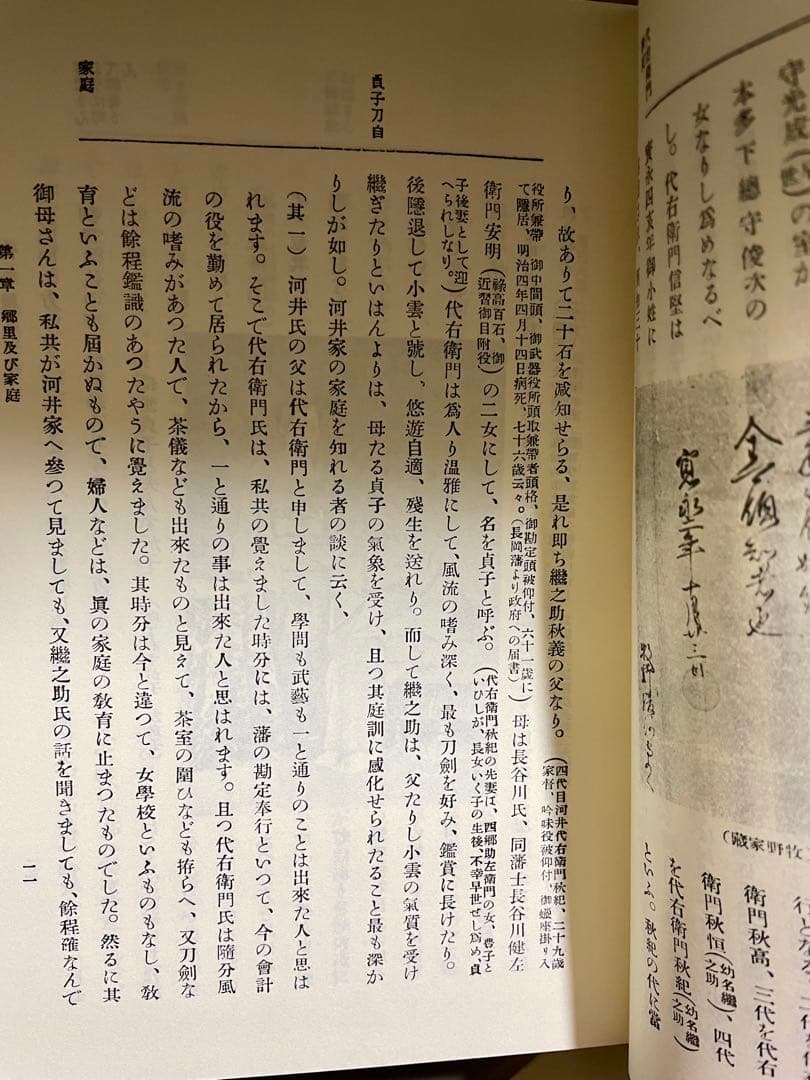 守
本多下總守俊次の
女なりし爲めなるべ
し。代右衞門信堅は
寛永四亥年御小姓に
牧野家藏)
衞門秋高、三代を代右
衞門秋恒(幼名繼之助)、四代
を代右衞門秋紀(幼名繼之助)
といふ。秋紀の代に當
り、故ありて二十石を减知せらる、是れ即ち繼之助秋義の父なり。(四代目河井代右衞門秋紀、二十九歳家督、吟味役被仰付、御蠟座掛り入
役所兼帶 御中間頭、御武器役所頭取兼帶者頭格、御勘定頭被仰付、六十一歳に
て隱居、明治四年四月十四日病死、七十六歳云々。(長岡藩より政府への屆書))母は長谷川氏、同藩士長谷川健左
衞門安明(祿高百石、御近習御目附役)の二女にして、名を貞子と呼ぶ。(代右衞門秋紀の先妻は、四郷助左衞門の女、豊子といひしが、長女いく子の生後、不幸早世せし爲め、貞
子後妻として迎へられしなり。)代右衞門は爲人り温雅にして、風流の嗜み深く、最も刀劍を好み、鑑賞に長けたり。
後隱退して小雲と號し、悠遊自適、殘生を送れり。而して繼之助は、父たりし小雲の氣質を受け
繼ぎたりといはんよりは、母たる貞子の氣象を受け、且つ其庭訓に感化せられたること最も深か
りしが如し。河井家の家庭を知れる者の談に云く、
(其一)河井氏の父は代右衞門と申しまして、學問も武藝も一と通りのことは出來た人と思は
れます。そこで代右衞門氏は、私共の覺えました時分には、藩の勘定奉行といつて、今の會計
の役を勤めて居られたから、一と通りの事は出來た人と思はれます。且つ代右衞門氏は隨分風
流の嗜みがあつた人で、茶儀なども出來たものと見えて、茶室の圍ひなども拵らへ、又刀劍な
どは餘程鑑識のあつたやうに覺えました。其時分は今と違つて、女學校といふものもなし、敎
育といふことも屆かぬもので、婦人などは、眞の家庭の敎育に止まつたものでした。然るに其
御母さんは、私共が河井家へ參つて見ましても、又繼之助氏の話を聞きましても、餘程確なんで
貞子刀自
家庭
第一章 郷里及び家庭
二一